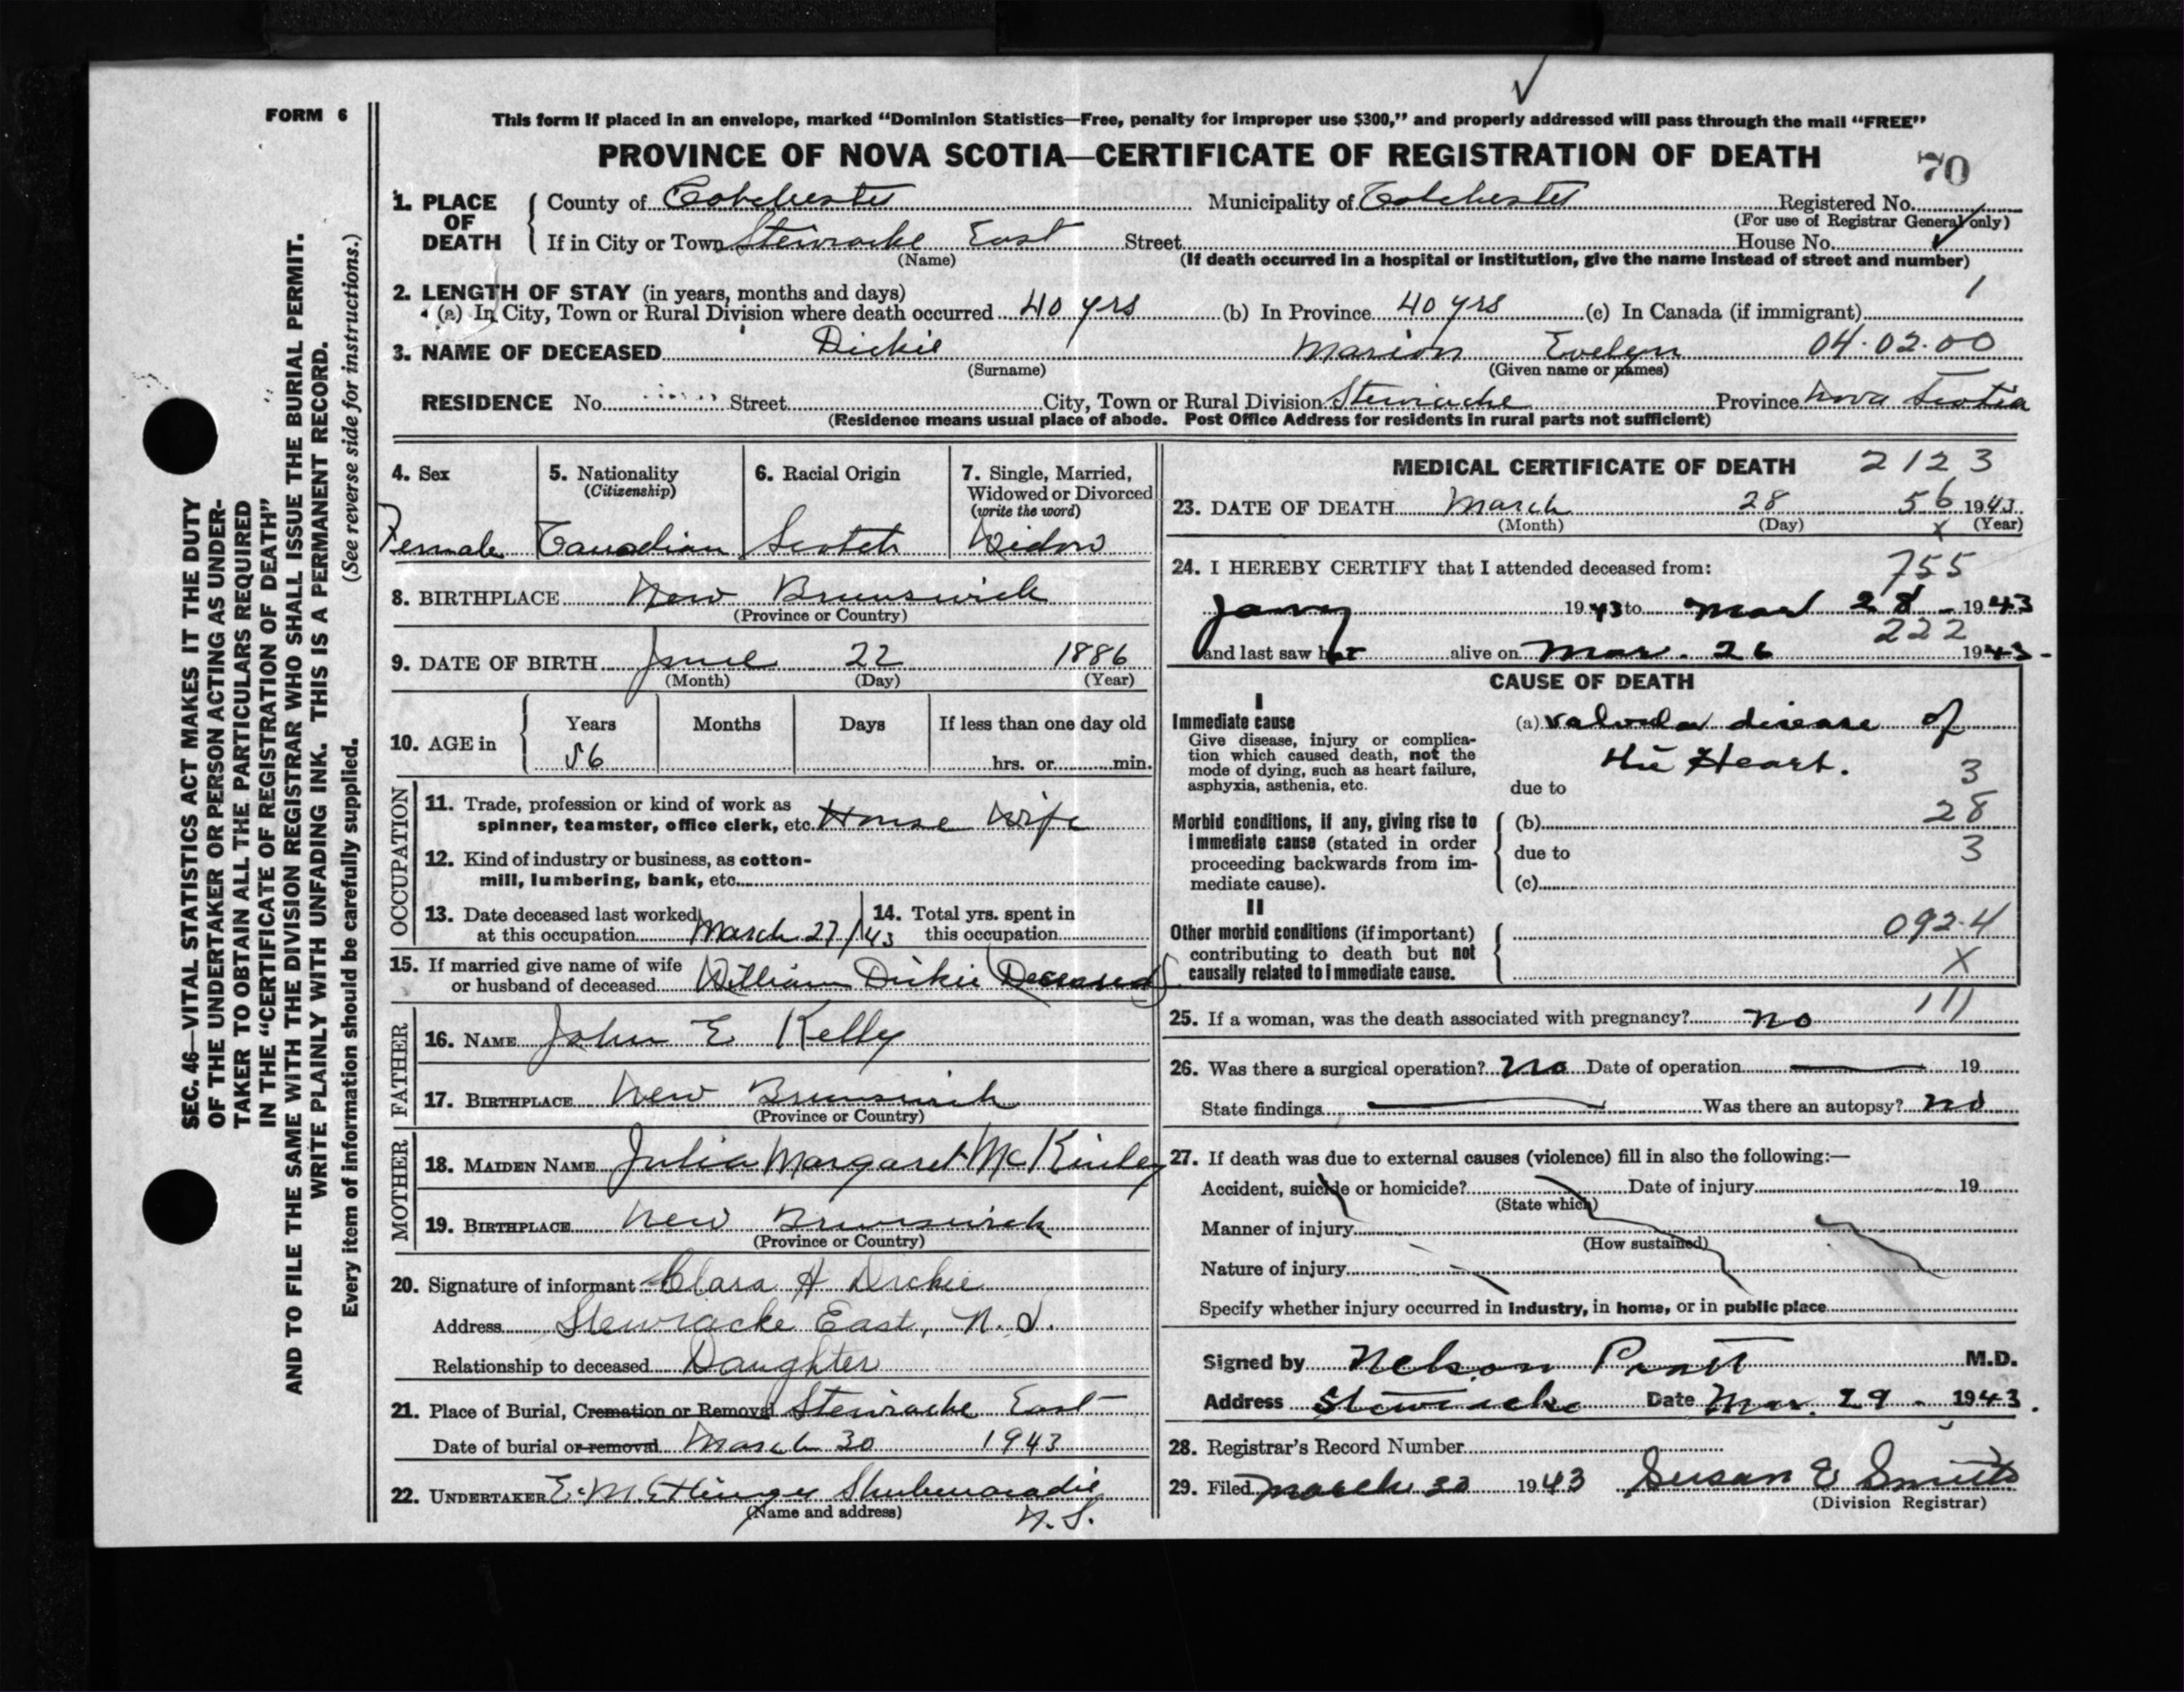 FORM 6
This form if placed in an envelope, marked “Dominion Statistics—Free, penalty for improper use $300,” and properly addressed will pass through the mail “FREE”
PROVINCE OF NOVA SCOTIA—CERTIFICATE OF REGISTRATION OF DEATH
70
1. PLACE OF DEATH
County of Colchester Municipality of Colchester Registered No.
(For use of Registrar General only)
If in City or Town Stewiacke East Street House No.
(Name)
(If death occurred in a hospital or institution, give the name instead of street and number)
2. LENGTH OF STAY (in years, months and days) 1
(a) In City, Town or Rural Division where death occurred 40 yrs (b) In Province 40 yrs (c) In Canada (if immigrant)
3. NAME OF DECEASED Dickie Marion Evelyn 04.02.00
(Surname) (Given name or names)
RESIDENCE No. Street City, Town or Rural Division Stewiacke Province Nova Scotia
(Residence means usual place of abode. Post Office Address for residents in rural parts not sufficient)
4. Sex
Female
5. Nationality
(Citizenship)
Canadian
6. Racial Origin
Scotch
7. Single, Married,
Widowed or Divorced
(write the word)
Widow
8. BIRTHPLACE New Brunswick
(Province or Country)
9. DATE OF BIRTH June 22 1886
(Month) (Day) (Year)
10. AGE in
Years Months Days If less than one day old
56 hrs. or min.
OCCUPATION
11. Trade, profession or kind of work as
spinner, teamster, office clerk, etc. House Wife
12. Kind of industry or business, as cotton-
mill, lumbering, bank, etc.
13. Date deceased last worked
at this occupation March 27/43
14. Total yrs. spent in
this occupation
15. If married give name of wife
or husband of deceased William Dickie (Deceased)
FATHER
16. NAME John E Kelly
17. BIRTHPLACE New Brunswick
(Province or Country)
MOTHER
18. MAIDEN NAME Julia Margaret McKinley
19. BIRTHPLACE New Brunswick
(Province or Country)
20. Signature of informant Clara H Dickie
Address Stewiacke East, N.S.
Relationship to deceased Daughter
21. Place of Burial, Cremation or Removal Stewiacke East
Date of burial or removal March 30 1943
22. UNDERTAKER E. M. Ettinger Shubenacadie
(Name and address) N.S.
MEDICAL CERTIFICATE OF DEATH 2123
23. DATE OF DEATH March 28 56 1943
(Month) (Day) x (Year)
24. I HEREBY CERTIFY that I attended deceased from: 755
1943 to Mar 28 1943
222
and last saw her alive on Mar. 26 1943
CAUSE OF DEATH
I
Immediate cause
Give disease, injury or complica-
tion which caused death, not the
mode of dying, such as heart failure,
asphyxia, asthenia, etc.
(a) valvular disease of
the Heart.
3
due to
28
Morbid conditions, if any, giving rise to
immediate cause (stated in order
proceeding backwards from im-
mediate cause).
(b)
due to 3
(c)
II
Other morbid conditions (if important)
contributing to death but not
causally related to immediate cause.
092.4
X
25. If a woman, was the death associated with pregnancy? no 111
26. Was there a surgical operation? No Date of operation 19
State findings Was there an autopsy? no
27. If death was due to external causes (violence) fill in also the following:—
Accident, suicide or homicide? Date of injury 19
(State which)
Manner of injury
(How sustained)
Nature of injury
Specify whether injury occurred in industry, in home, or in public place
Signed by Nelson Pratt M.D.
Address Stewiacke Date Mar. 29 1943.
28. Registrar's Record Number
29. Filed March 30 1943 Susan E Smith
(Division Registrar)
SEC. 46—VITAL STATISTICS ACT MAKES IT THE DUTY
OF THE UNDERTAKER OR PERSON ACTING AS UNDER-
TAKER TO OBTAIN ALL THE PARTICULARS REQUIRED
IN THE “CERTIFICATE OF REGISTRATION OF DEATH”
AND TO FILE THE SAME WITH THE DIVISION REGISTRAR WHO SHALL ISSUE THE BURIAL PERMIT.
WRITE PLAINLY WITH UNFADING INK. THIS IS A PERMANENT RECORD.
Every item of information should be carefully supplied. (See reverse side for instructions.)